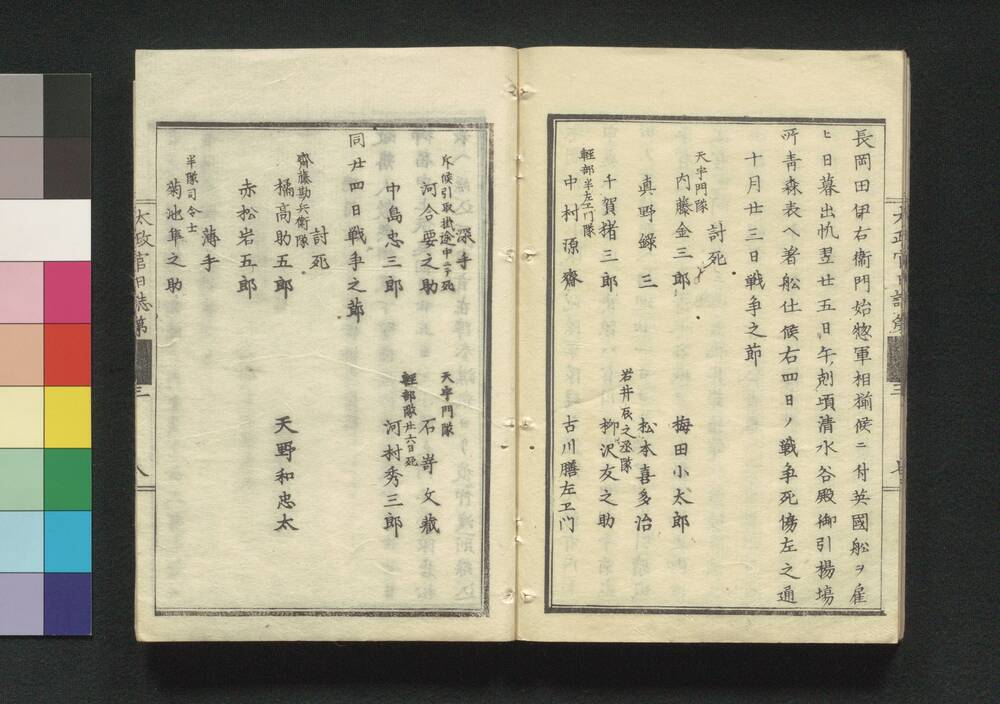 長岡田伊右衛門始惣軍相揃候ニ付英國舩ヲ雇
ヒ日暮出帆翌廿五日午刻頃清水谷殿御引揚塲
所青森表ヘ著舩仕候右四日ノ戰爭死傷左之通
十月廿三日戰爭之節
討死
天宇門隊
内藤金三郎
梅田小太郎
真野錄三
松本喜多治
岩井辰之丞隊
千賀猪三郎
柳沢友之助
輕部半左ヱ門隊
中村源齋
古川膳左ヱ門
太政官日誌第
三
深手
天宇門隊
斥候引取掛途中ニテ死
河合要之助
石嵜文藏
輕部隊廿六日死
中島忠三郎
河村秀三郎
同廿四日戰爭之節
討死
齋藤勘兵衛隊
橘高助五郎
天野和忠太
赤松岩五郎
薄手
半隊司令士
菊池隼之助
太政官日誌第
三
八